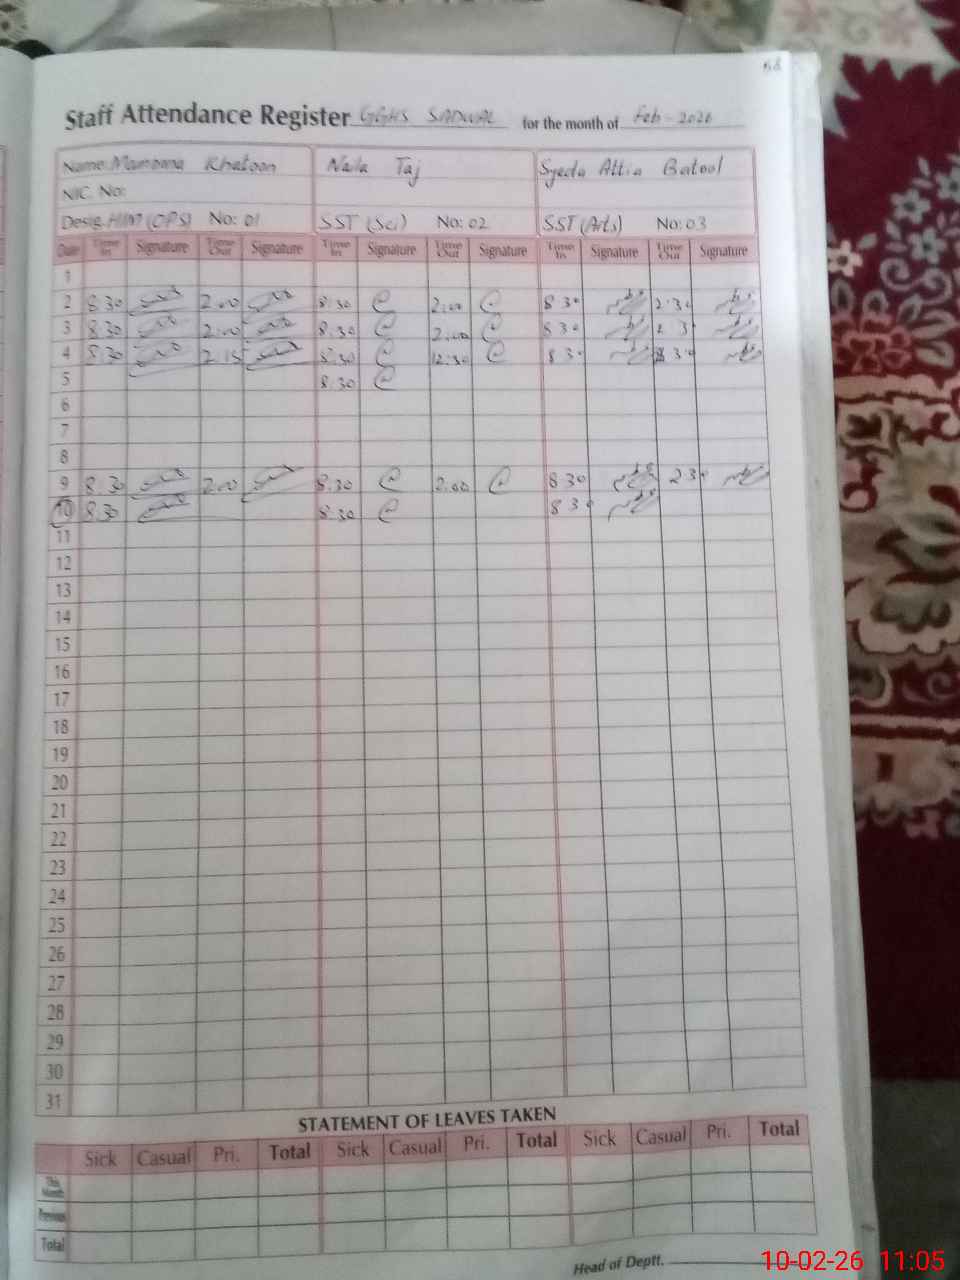 58
Staff Attendance Register GGHS SADWAL for the month of Feb-2026
Name: Khatoon Naila Taj Syeda Attia Batool
NIC. No:
Desig. H/M (OPS) No: 01 SST (Sci) No: 02 SST (Arts) No: 03
Date Time In Signature Time Out Signature Time In Signature Time Out Signature Time In Signature Time Out Signature
1
2 8.30 2.00 8.30 2.00 8 30 2.30
3 8.30 2.00 8.30 2.00 8 30
4 8.30 2.15 8.30 12.30 8 30
5 8.30
6
7
8
9 8.30 2.00 8.30 2.00 8 30 2 30
10 8.30 8.30 8 30
11
12
13
14
15
16
17
18
19
20
21
22
23
24
25
26
27
28
29
30
31
STATEMENT OF LEAVES TAKEN
Sick Casual Pri. Total Sick Casual Pri. Total Sick Casual Pri. Total
This Month
Previous
Total
Head of Deptt.
10-02-26 11:05